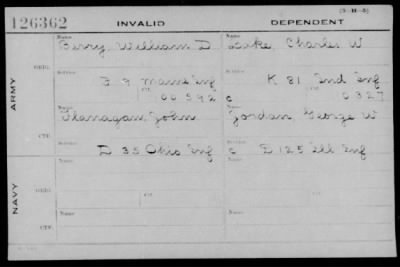 (3-H-5)
126362 INVALID DEPENDENT
Name Name
Berry, William D Lake, Charles W
ORIG. Service Service
F 9 Maine Inf K 81 Ind Inf
Ctf. C
00592 0327
ARMY
Name Name
Flanagan, John Jordan, George W
CTF. Service Service
D 35 Ohio Inf C D 125 Ill Inf
Name Name
ORIG. Service Service
Ctf. Ctf.
NAVY
Name Name
CTF. Service Service